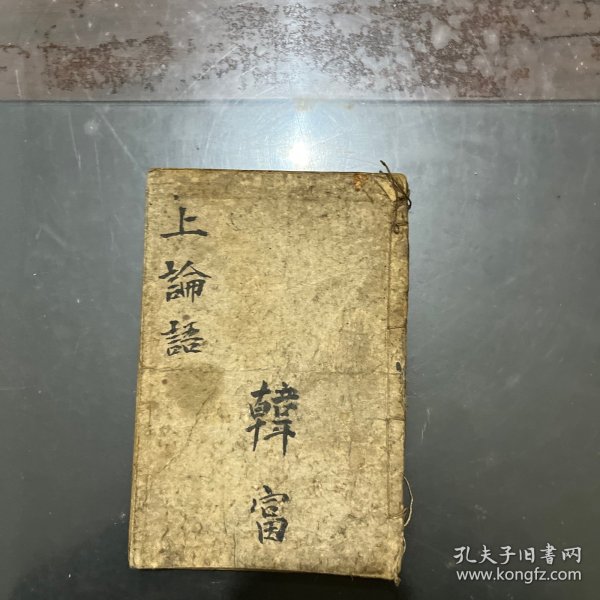 上論語
韓富
孔夫子旧书网
www.kongfz.com